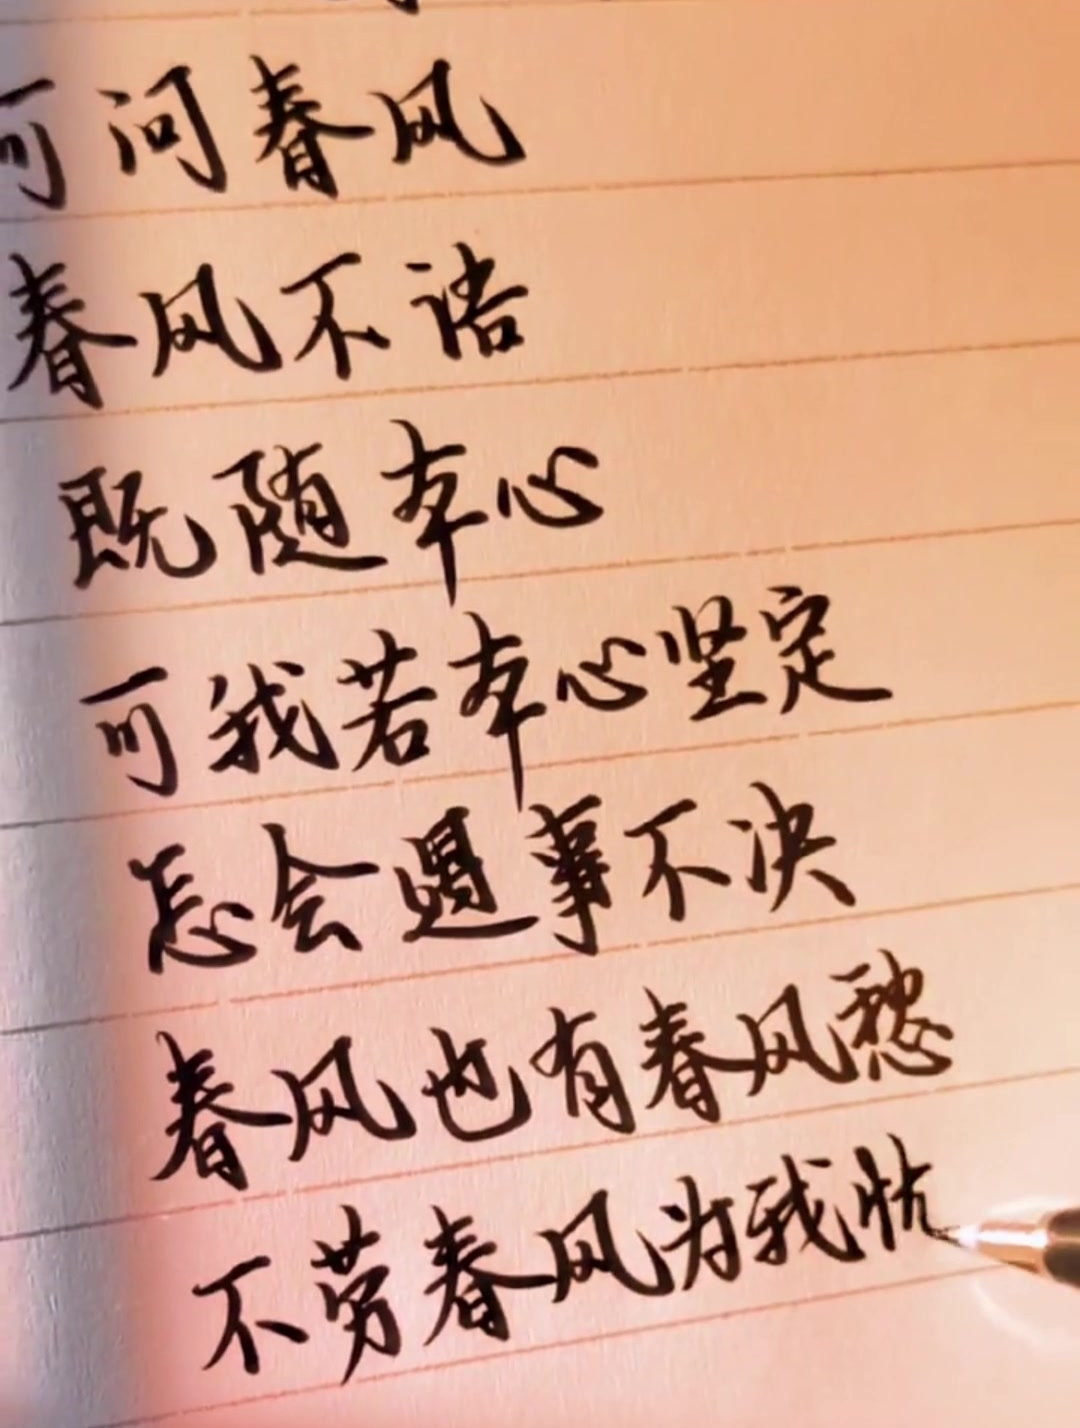 可问春风
春风不语
既随本心
可我若本心坚定
怎会遇事不决
春风也有春风愁
不劳春风为我忧